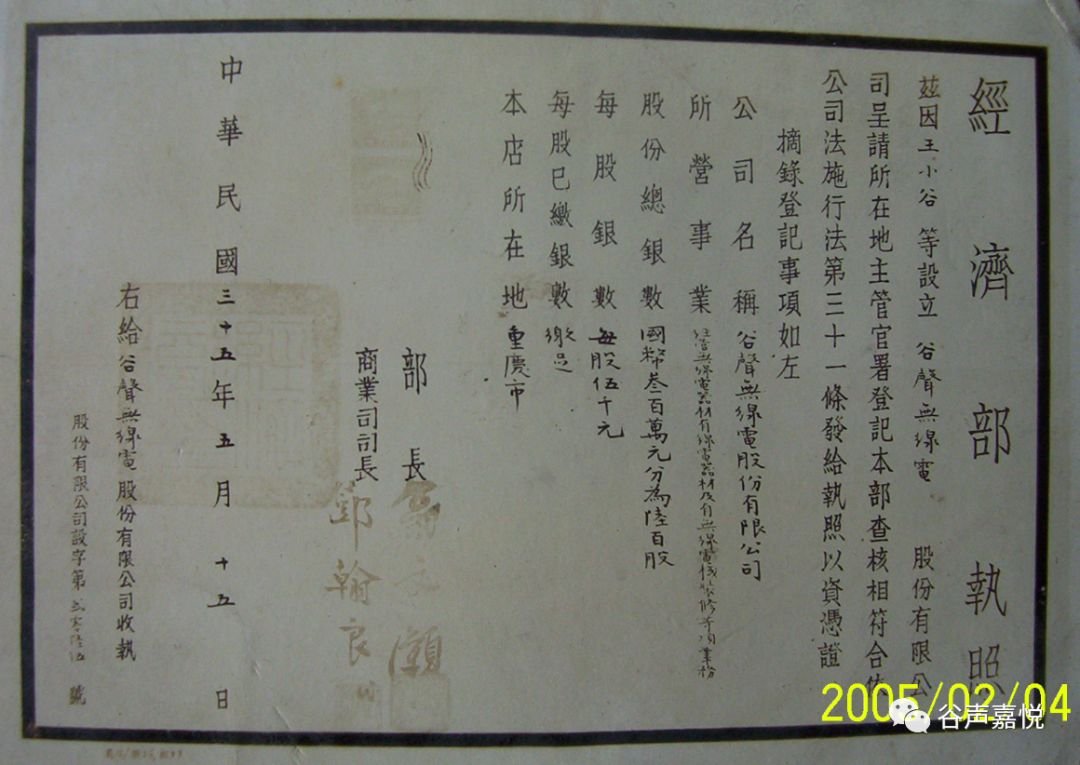 經濟部執照
茲因王小谷等設立谷聲無線電股份有限公
司呈請所在地主管官署登記本部查核相符合依
公司法施行法第三十一條發給執照以資憑證
摘錄登記事項如左
公司名稱谷聲無線電股份有限公司
所營事業經營無線電器材有線電器材及有無線電機裝修等項業務
股份總銀數國幣叁百萬元分為陸百股
每股銀數每股伍千元
每股已繳銀數繳足
本店所在地重慶市
部長翁文灝
商業司司長鄧翰良
中華民國三十五年五月十五日
右給谷聲無線電股份有限公司收執
股份有限公司設字第貳零陸伍號
2005/02/04
谷声嘉悦